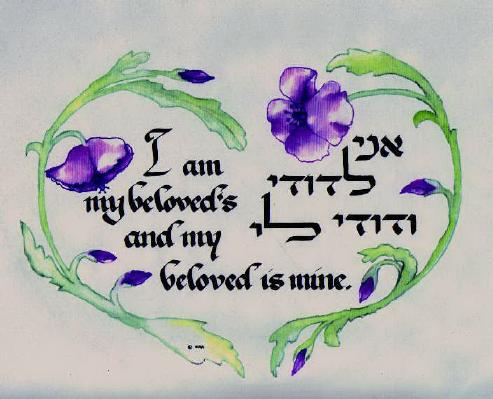 I am
my beloved's
and my
beloved is mine.
אני
לדודי
ודודי לי